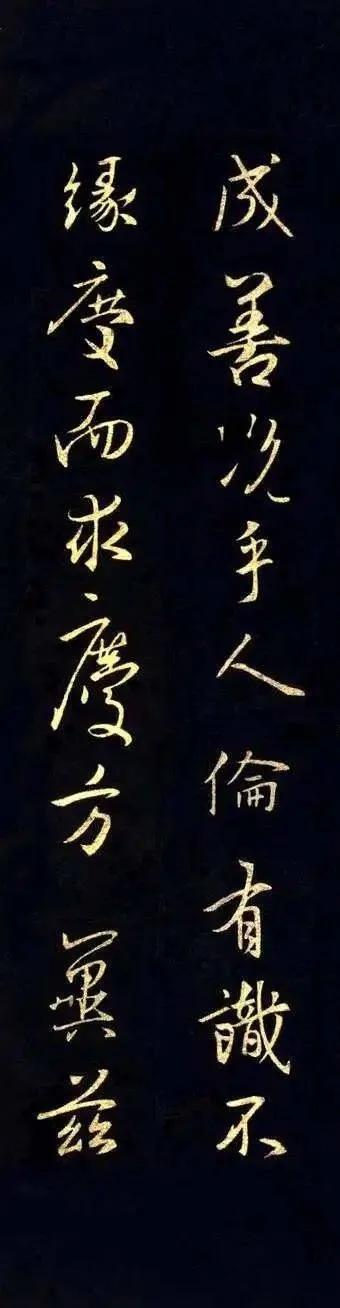 成善况乎人倫有識不
緣慶而求慶方冀茲